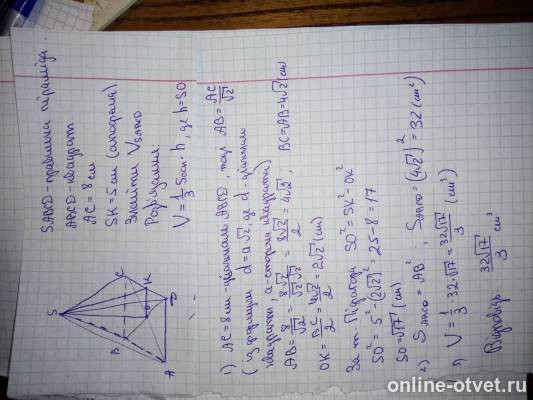 SABCD-правильна піраміда.
ABCD-квадрат
AC = 8 см
SK = 5 см (апофема)
Знайти V SABCD.
Розв'язання
V = 1/3 Sосн · h, де h = SO
S
B
C
K
O
A
D
1) AC = 8 см - діагональ ABCD, тоді AB = AC/√2
(із формули d = a√2, де d - діагональ
квадрата, a - сторона квадрата)
AB = 8/√2 = 8√2/√2·√2 = 8√2/2 = 4√2, BC = AB = 4√2 (см)
OK = BC/2 = 4√2/2 = 2√2 (см)
За т. Піфагора SO² = SK² - OK²
SO² = 5² - (2√2)² = 25 - 8 = 17
SO = √17 (см)
2) S ABCD = AB², S ABCD = (4√2)² = 32 (см²)
3) V = 1/3 · 32 · √17 = 32√17/3 (см³)
Відповідь: 32√17/3 см³
online-otvet.ru